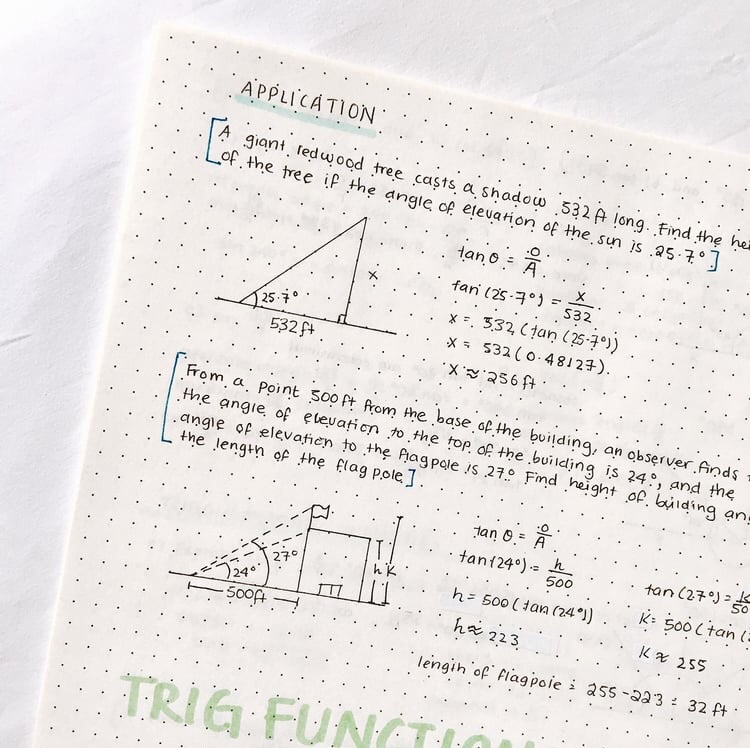 APPLICATION
[A giant redwood tree casts a shadow 532 ft long. Find the
of the tree if the angle of elevation of the sun is 25.7°]
25.7°
x
532 ft
tan θ = O/A
tan (25.7°) = x/532
x = 532 (tan (25.7°))
x = 532 (0.48127)
x ≈ 256 ft
[From a point 500 ft from the base of the building, an observer finds
the angle of elevation to the top of the building is 24°, and the
angle of elevation to the flagpole is 27° Find height of building
the length of the flagpole]
27°
24°
h
K
500 ft
tan θ = O/A
tan (24°) = h/500
h = 500 (tan (24°))
h ≈ 223
tan (27°) =
K = 500 (tan
K ≈ 255
length of flagpole = 255 - 223 = 32 ft
TRIG FUNCTION